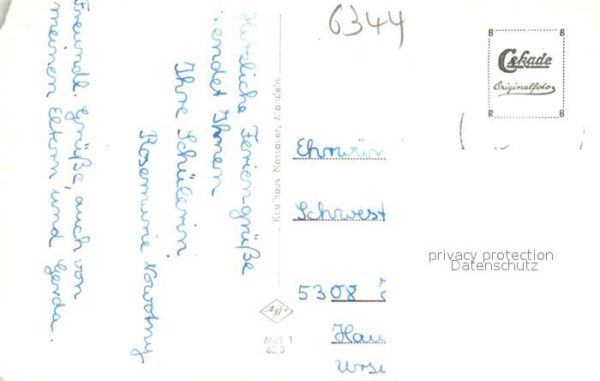 6344
Cekade
Originalfoto
B B
R B
Herzliche Feriengrüße
sendet Ihnen
Ihre Schülerin
Rosemarie Nowotny
Freundl. Grüße, auch von
meinen Eltern und Gerda.
Kaufhaus Nassauer, Mandeln
Ehrwür
Schwest
5308
Hau
Ursu
privacy protection
Datenschutz